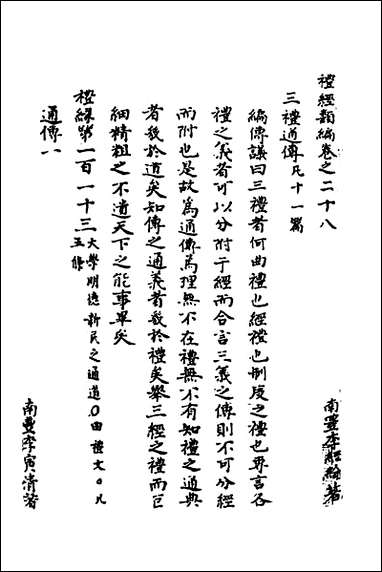 禮經類編卷之二十八
南豐李經綸著
三禮通傳凡十一篇
編傳議曰三禮者何曲禮也經禮也制度之禮也專言各
禮之義者可以分附于經而合言三義之傳則不可分經
而附也是故為通傳為理無不在禮無不有知禮之通典
者幾於道矣知傳之通義者幾於禮矣舉三經之禮而巨
細精粗之不遺天下之能事畢矣
禮緣第一百一十三 大學明德新民之通道〇曲禮文〇凡
五條
通傳一
南豐李寅清著